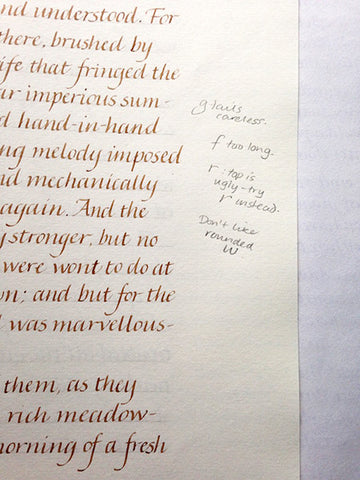 nd understood. For
there, brushed by
ife that fringed the
ur imperious sum-
d hand-in-hand
ng melody imposed
nd mechanically
again. And the
y stronger, but no
were wont to do at
wn; and but for the
d was marvellous-
them, as they
rich meadow-
morning of a fresh
g tails
careless.
f too long.
r: top is
ugly-try
r instead.
Don't like
rounded
w